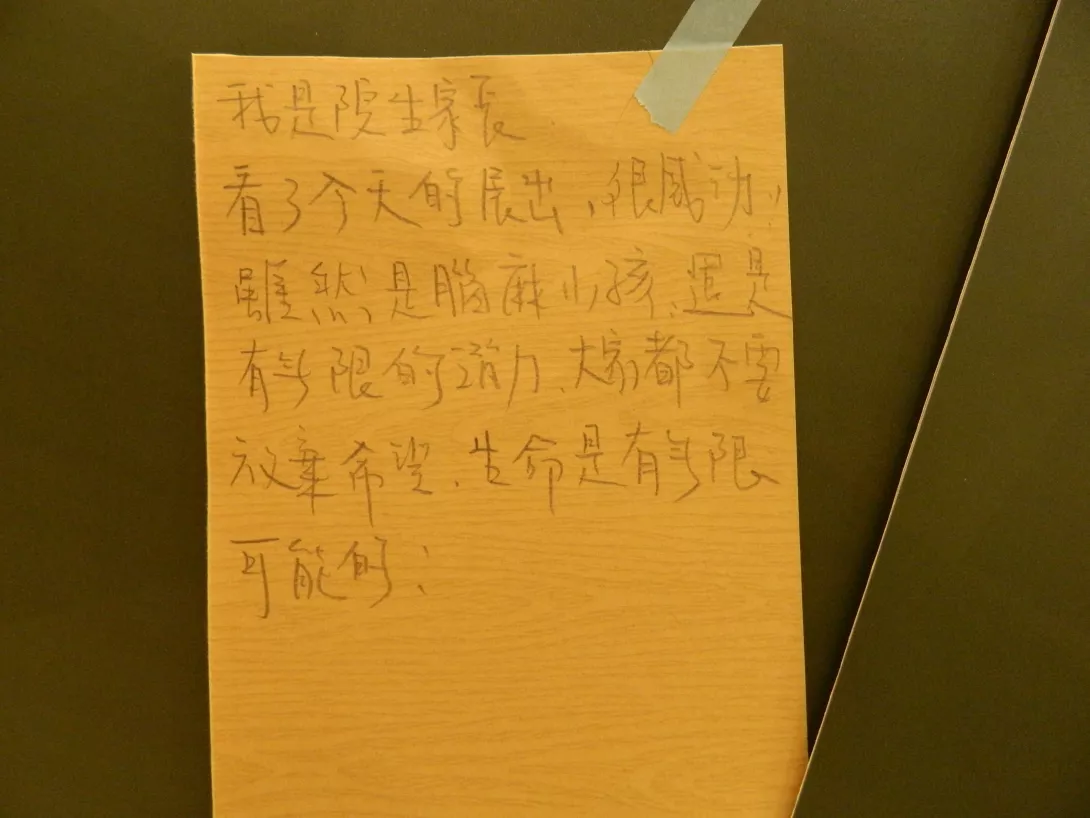 我是院生家長
看了今天的展出，很感动！
雖然是腦麻小孩、還是
有無限的潜力、大家都不要
放棄希望、生命是有無限
可能的！